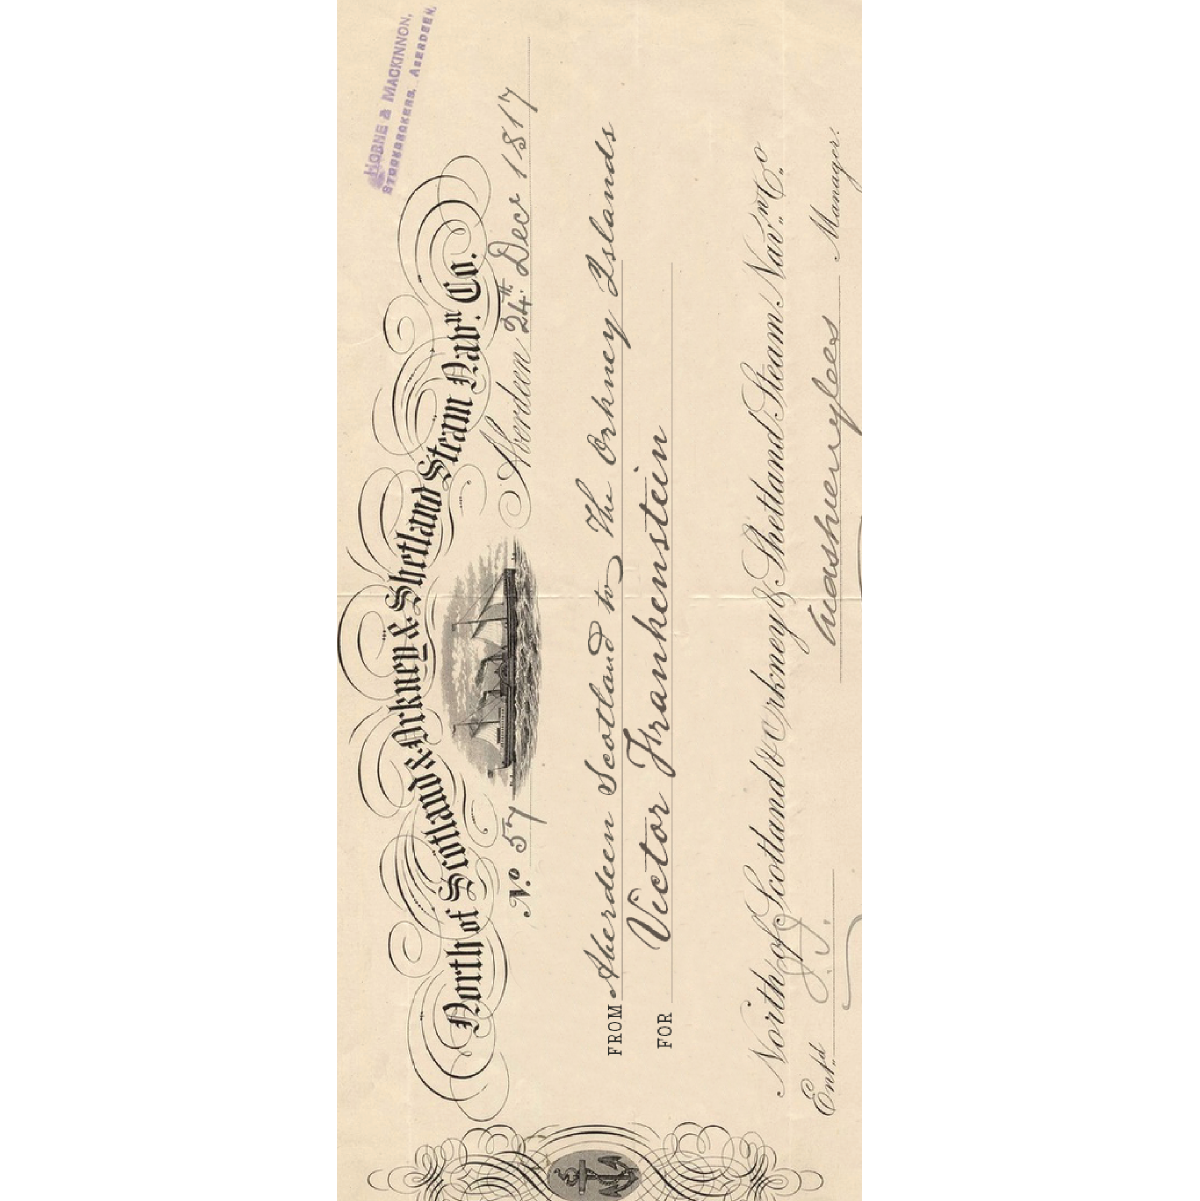 HORNE & MACKINNON,
STOCKBROKERS, ABERDEEN.
North of Scotland & Orkney & Shetland Steam Navn. Co.
No. 57 Aberdeen 24th Decr 1817
FROM Aberdeen Scotland to The Orkney Islands
FOR Victor Frankenstein
North of Scotland & Orkney & Shetland Steam Navn. Co
Manager.
Entd.